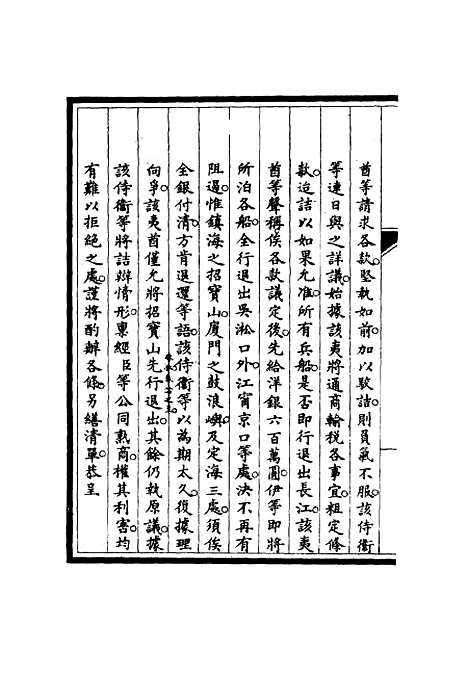 酋等請求各款堅執如前加以駁詰則負氣不服該侍衛
等連日與之詳議始據該夷將通商輸稅各事宜粗定條
款迨詰以如果允准所有兵船是否即行退出長江該夷
酋等聲稱俟各款議定後先給洋銀六百萬圓伊等即將
所泊各船全行退出吳淞口外江甯京口等處決不再有
阻遏惟鎮海之招寶山廈門之鼓浪嶼及定海三處須俟
全銀付清方肯退還等語該侍衛等以為期太久復據理
向爭該夷酋僅允將招寶山先行退出其餘仍執原議據
該侍衛等將詰辯情形稟經臣等公同熟商權其利害均
有難以拒絕之處謹將酌辦各條另繕清單恭呈